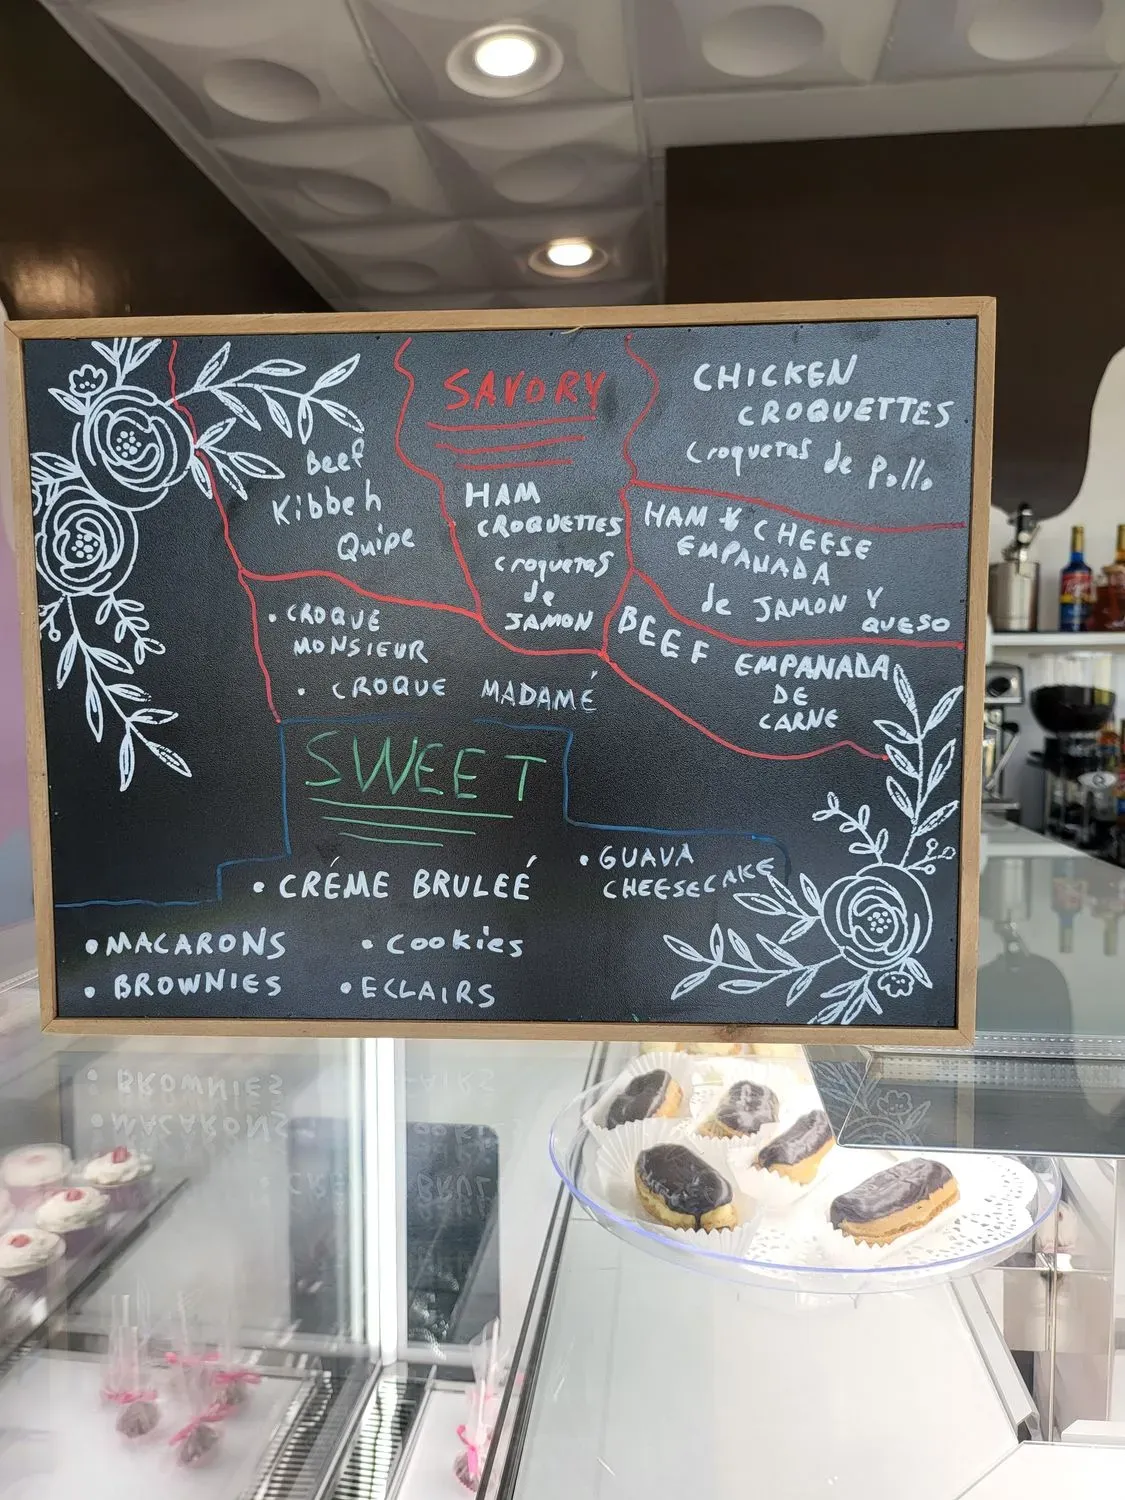 SAVORY
Beef
Kibbeh
Quipe
HAM
CROQUETTES
croquetas
de
JAMON
CHICKEN
CROQUETTES
Croquetas de Pollo
HAM & CHEESE
EMPANADA
de JAMON Y
QUESO
BEEF EMPANADA
DE
CARNE
• CROQUE
MONSIEUR
• CROQUE MADAMÉ
SWEET
• CRÉME BRULEÉ
• GUAVA
CHEESECAKE
• MACARONS
• COOKIES
• BROWNIES
• ECLAIRS